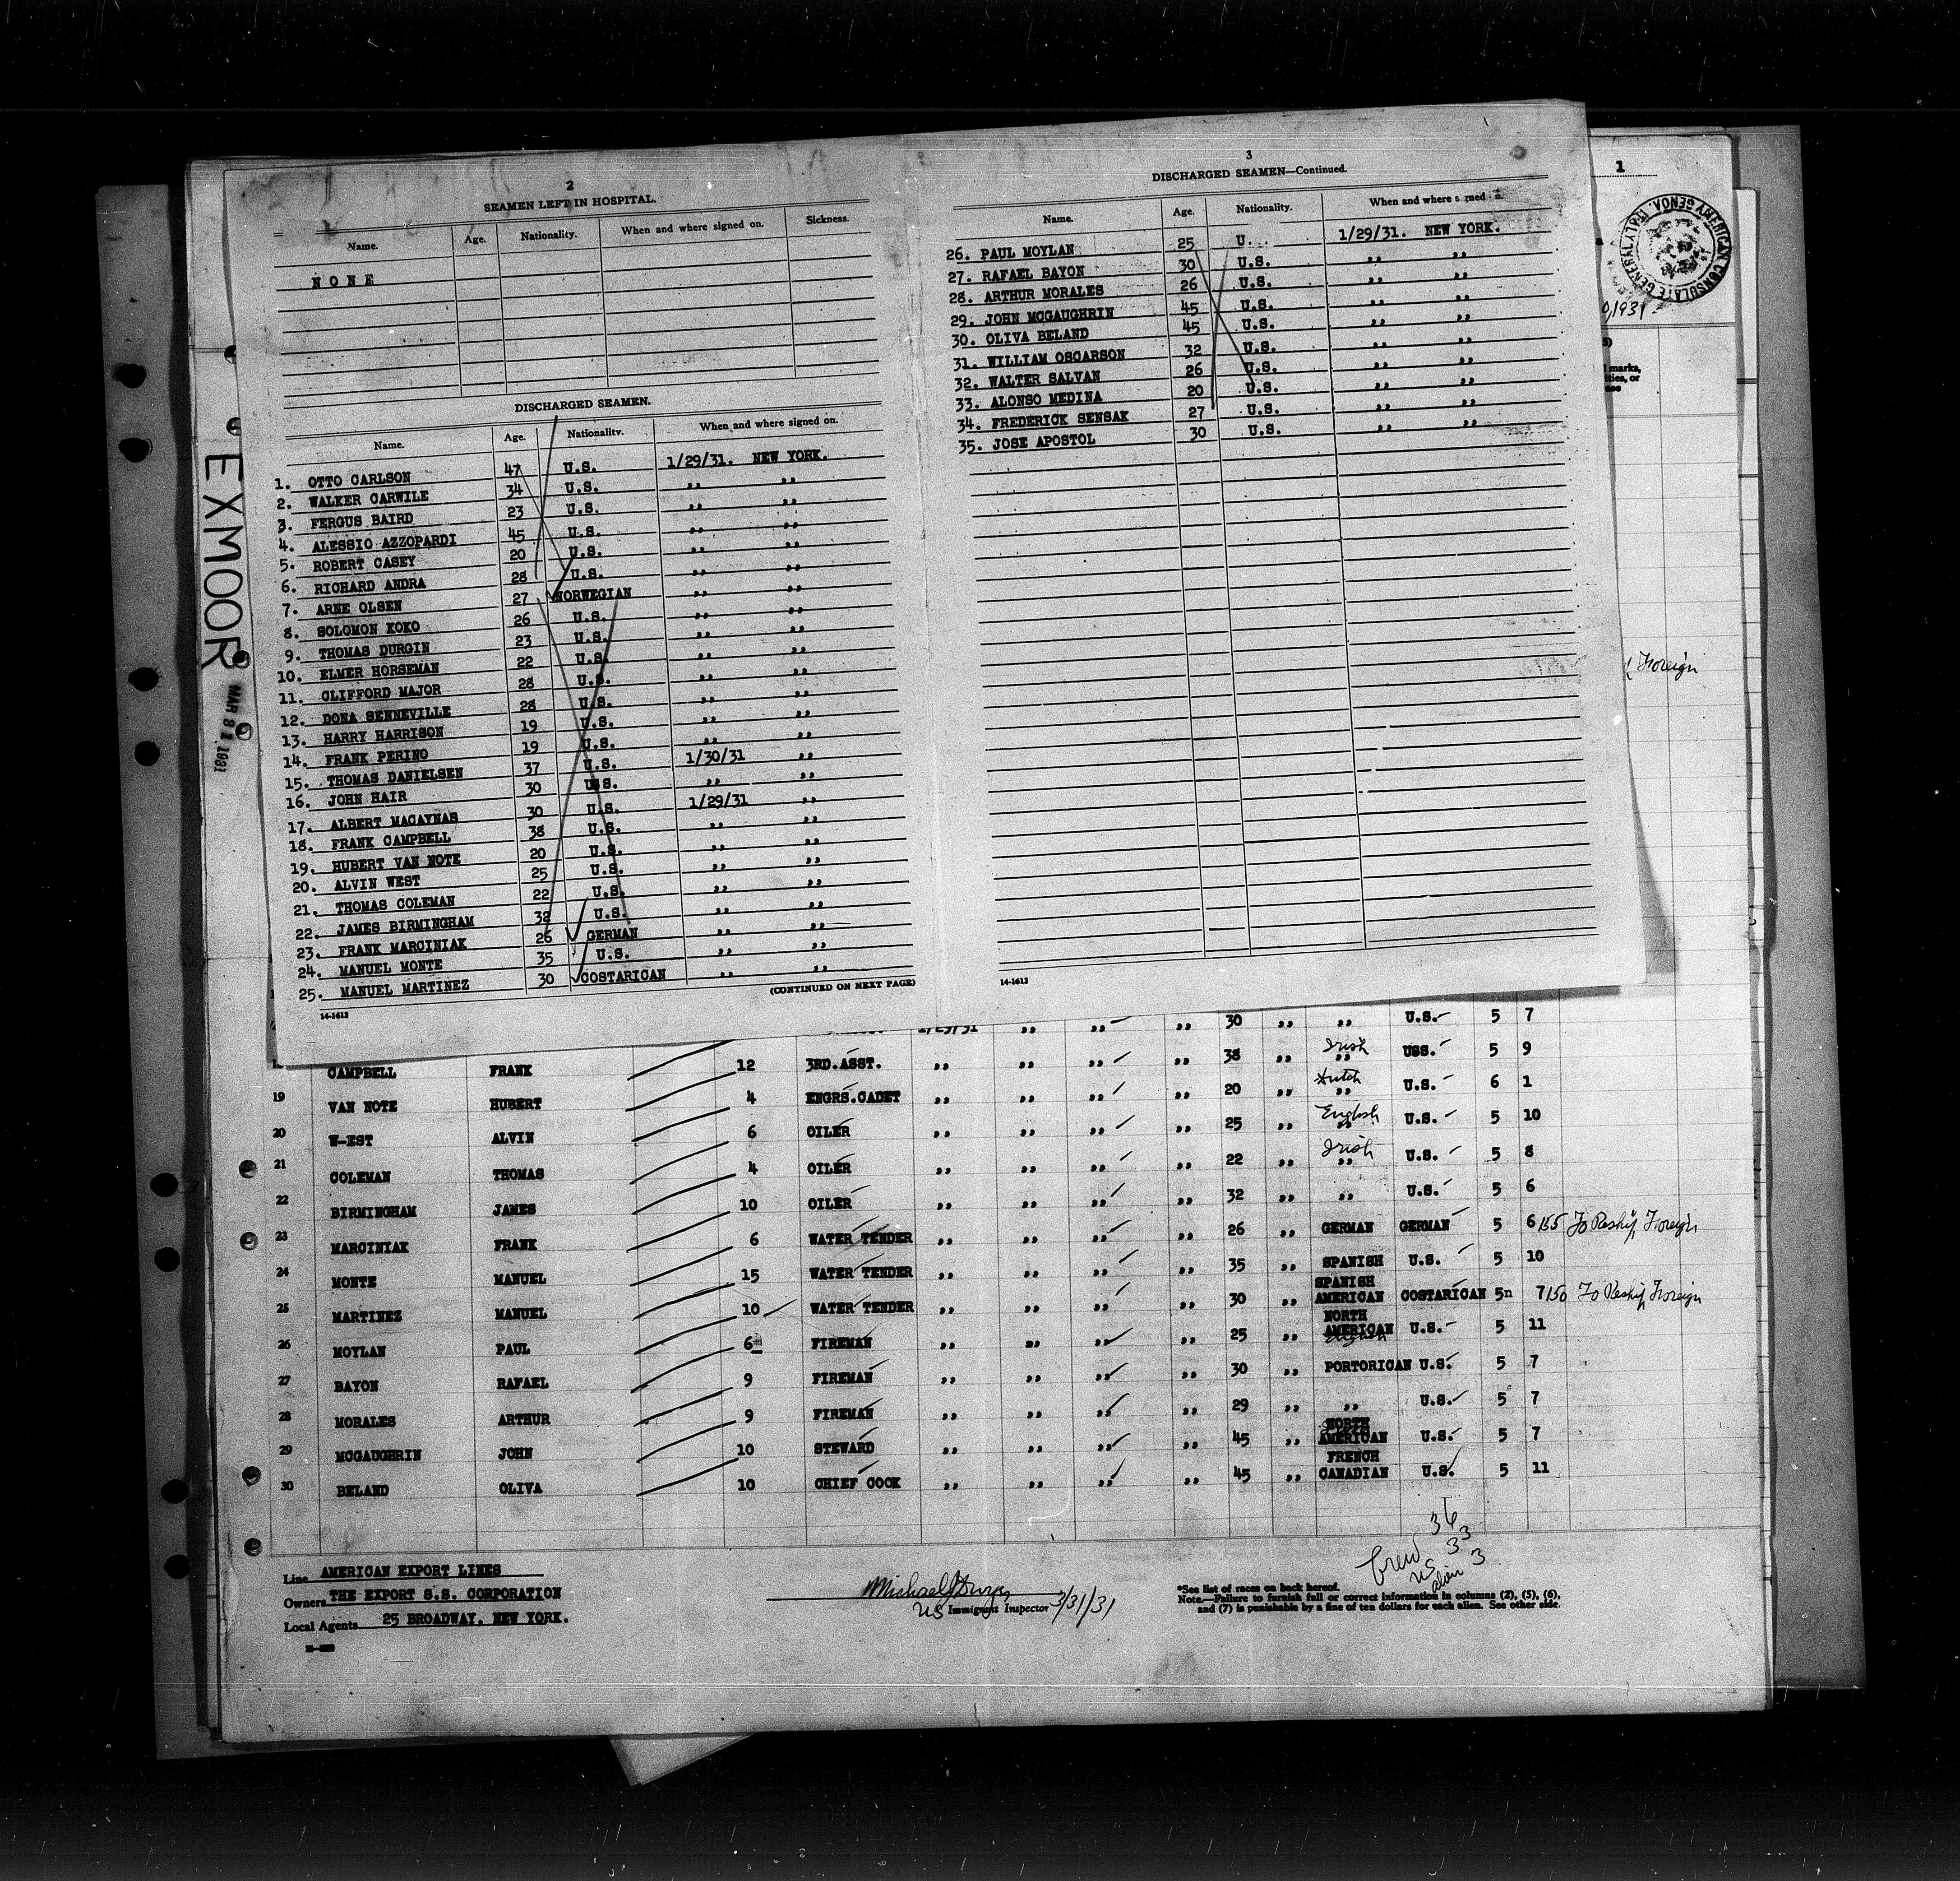 2
SEAMEN LEFT IN HOSPITAL.
Name. Age. Nationality. When and where signed on. Sickness.
NONE
DISCHARGED SEAMEN.
Name. Age. Nationality. When and where signed on.
1. OTTO CARLSON 47 U.S. 1/29/31. NEW YORK.
2. WALKER CARWILE 34 U.S. ,, ,,
3. FERGUS BAIRD 23 U.S. ,, ,,
4. ALESSIO AZZOPARDI 45 U.S. ,, ,,
5. ROBERT CASEY 20 U.S. ,, ,,
6. RICHARD ANDRA 28 U.S. ,, ,,
7. ARNE OLSEN 27 NORWEGIAN ,, ,,
8. SOLOMON KOKO 26 U.S. ,, ,,
9. THOMAS DURGIN 23 U.S. ,, ,,
10. ELMER HORSEMAN 22 U.S. ,, ,,
11. CLIFFORD MAJOR 28 U.S. ,, ,,
12. DONA SENNEVILLE 28 U.S. ,, ,,
13. HARRY HARRISON 19 U.S. ,, ,,
14. FRANK PERINO 19 U.S. ,, ,,
15. THOMAS DANIELSEN 37 U.S. 1/30/31 ,,
16. JOHN HAIR 30 U.S. ,, ,,
17. ALBERT MACAYNAS 30 U.S. 1/29/31 ,,
18. FRANK CAMPBELL 38 U.S. ,, ,,
19. HUBERT VAN NOTE 20 U.S. ,, ,,
20. ALVIN WEST 25 U.S. ,, ,,
21. THOMAS COLEMAN 22 U.S. ,, ,,
22. JAMES BIRMINGHAM 32 U.S. ,, ,,
23. FRANK MARCINIAK 26 GERMAN ,, ,,
24. MANUEL MONTE 35 U.S. ,, ,,
25. MANUEL MARTINEZ 30 COSTARICAN ,, ,,
(CONTINUED ON NEXT PAGE)
14-1613
3
DISCHARGED SEAMEN—Continued.
Name. Age. Nationality. When and where signed on.
26. PAUL MOYLAN 25 U. 1/29/31. NEW YORK.
27. RAFAEL BAYON 30 U.S. ,, ,,
28. ARTHUR MORALES 26 U.S. ,, ,,
29. JOHN MCGAUGHRIN 45 U.S. ,, ,,
30. OLIVA BELAND 45 U.S. ,, ,,
31. WILLIAM OSCARSON 32 U.S. ,, ,,
32. WALTER SALVAN 26 U.S. ,, ,,
33. ALONSO MEDINA 20 U.S. ,, ,,
34. FREDERICK SENSAK 27 U.S. ,, ,,
35. JOSE APOSTOL 30 U.S. ,, ,,
14-1613
1
AMERICAN CONSULATE GENERAL GENOA, ITALY
0,1931
marks,
Foreign
EXMOOR
MAR 31 1931
1/29/31 ,, ,, ,, 30 ,, ,, U.S. 5 7
CAMPBELL FRANK 12 3RD.ASST. ,, ,, ,, ,, 38 ,, Irish ,, USS. 5 9
19 VAN NOTE HUBERT 4 ENGRS.CADET ,, ,, ,, ,, 20 ,, Dutch ,, U.S. 6 1
20 W-EST ALVIN 6 OILER ,, ,, ,, ,, 25 ,, English ,, U.S. 5 10
21 COLEMAN THOMAS 4 OILER ,, ,, ,, ,, 22 ,, Irish ,, U.S. 5 8
22 BIRMINGHAM JAMES 10 OILER ,, ,, ,, ,, 32 ,, ,, U.S. 5 6
23 MARCINIAK FRANK 6 WATER TENDER ,, ,, ,, ,, 26 ,, GERMAN GERMAN 5 6 155 To Reship Foreign
24 MONTE MANUEL 15 WATER TENDER ,, ,, ,, ,, 35 ,, SPANISH U.S. 5 10
25 MARTINEZ MANUEL 10 WATER TENDER ,, ,, ,, ,, 30 ,, SPANISH AMERICAN COSTARICAN 5n 7 150 To Reship Foreign
26 MOYLAN PAUL 6 FIREMAN ,, ,, ,, ,, 25 ,, NORTH AMERICAN English U.S. 5 11
27 BAYON RAFAEL 9 FIREMAN ,, ,, ,, ,, 30 ,, PORTORICAN U.S. 5 7
28 MORALES ARTHUR 9 FIREMAN ,, ,, ,, ,, 29 ,, ,, U.S. 5 7
29 MCGAUGHRIN JOHN 10 STEWARD ,, ,, ,, ,, 45 ,, NORTH AMERICAN U.S. 5 7
30 BELAND OLIVA 10 CHIEF COOK ,, ,, ,, ,, 45 ,, FRENCH CANADIAN U.S. 5 11
Crew 36
US 33
alien 3
Line AMERICAN EXPORT LINES
Owners THE EXPORT S.S. CORPORATION
Local Agents 25 BROADWAY, NEW YORK.
Michael
US Immigrant Inspector 3/31/31
*See list of races on back hereof.
Note.—Failure to furnish full or correct information in columns (2), (5), (6),
and (7) is punishable by a fine of ten dollars for each alien. See other side.